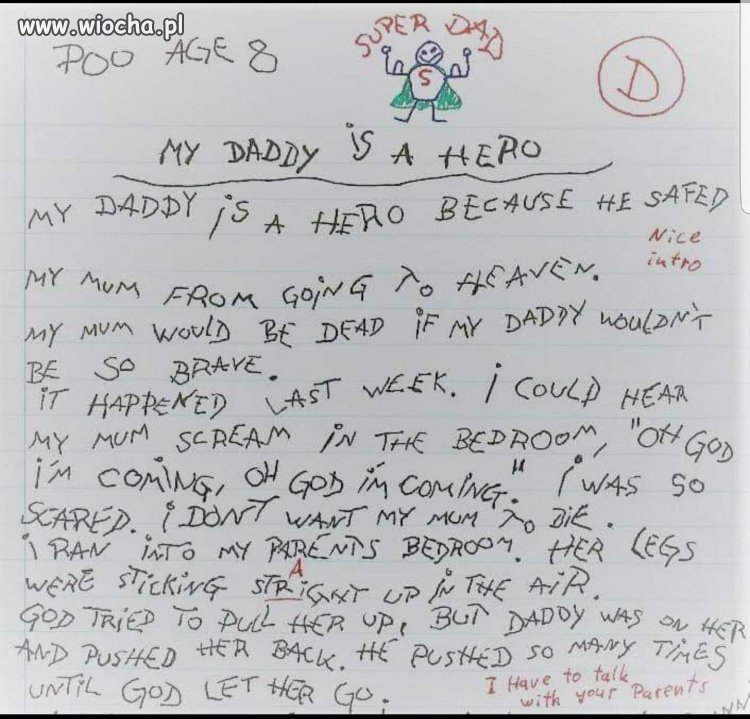 www.wiocha.pl
SUPER DAD
POO AGE 8
S
D
MY DADDY iS A HERO
MY DADDY iS A HERO BECAUSE HE SAFED
Nice
intro
MY MUM FROM GOiNG TO HEAVEN.
MY MUM WOULD BE DEAD iF MY DADDY WOULDN'T
BE SO BRAVE.
iT HAPPENED LAST WEEK. i COULD HEAR
MY MUM SCREAM iN THE BEDROOM, "OH GOD
i'M COMiNG, OH GOD i'M COMiNG." i WAS SO
SCARED. i DON'T WANT MY MUM TO DiE.
i RAN iNTO MY PARENTS BEDROOM. HER LEGS
A
WERE STiCKiNG STRiGHT UP iN THE AiR.
GOD TRiED TO PULL HER UP, BUT DADDY WAS ON HER
AND PUSHED HER BACK. HE PUSHED SO MANY TiMES
UNTiL GOD LET HER GO.
I Have to talk
with your Parents